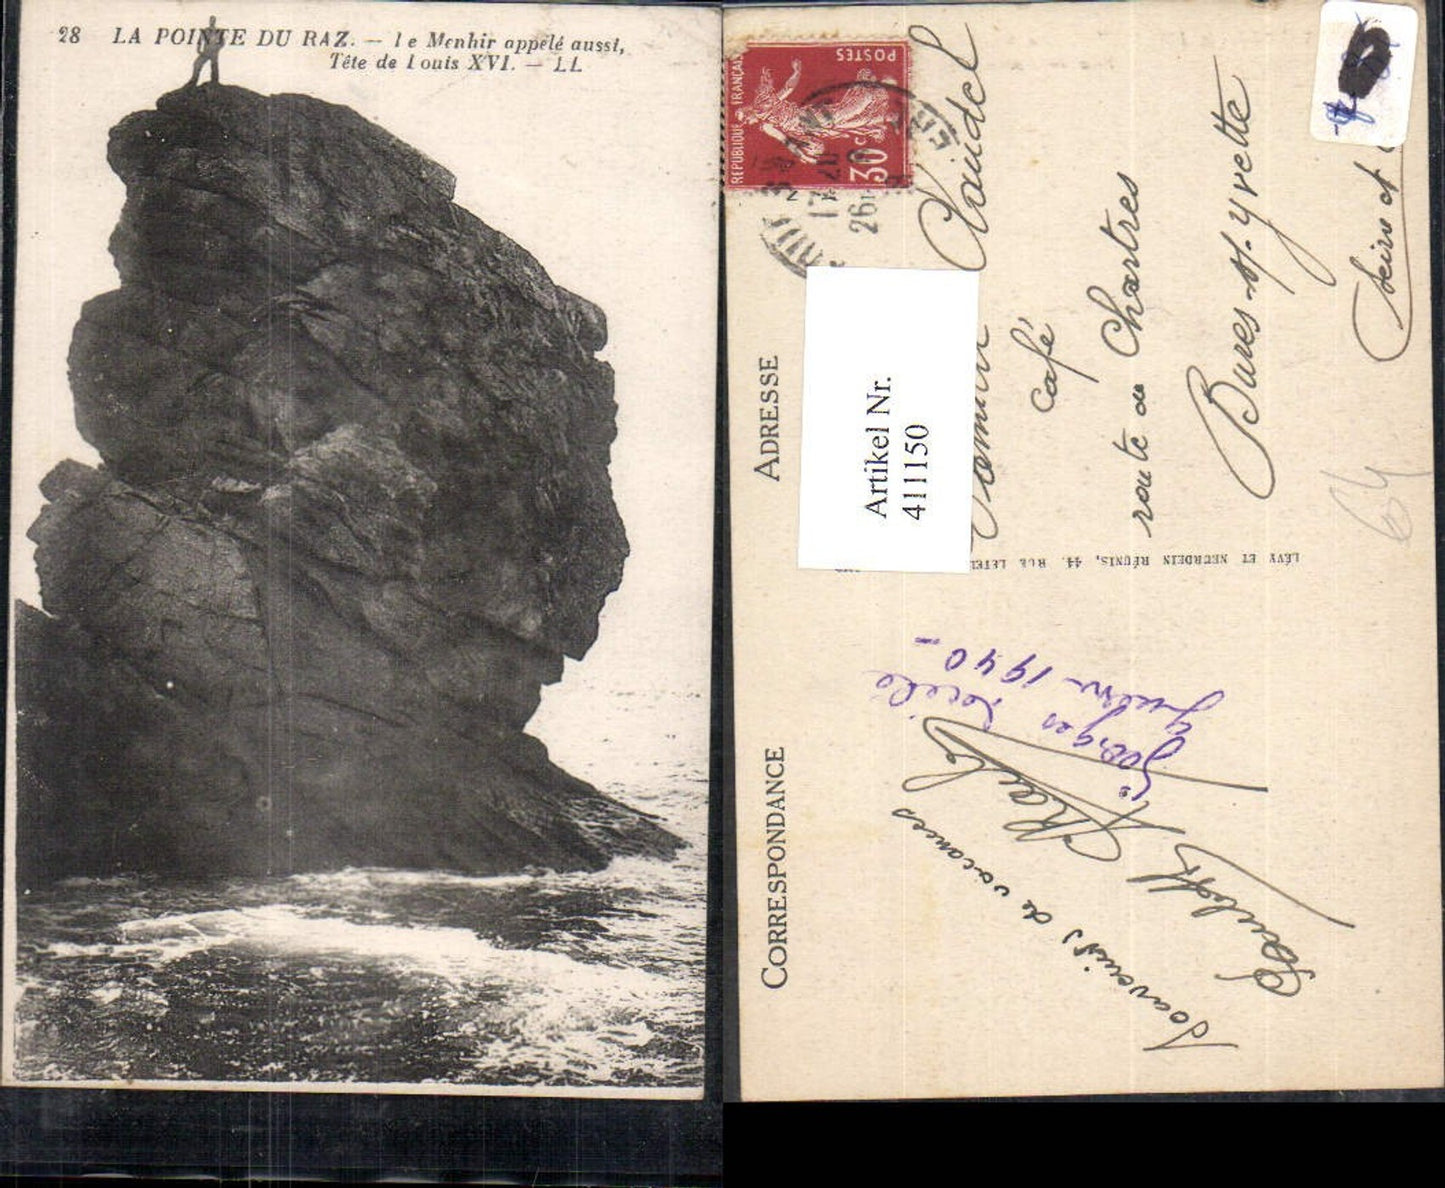 28 LA POINTE DU RAZ. — Le Menhir appelé aussi,
Tête de Louis XVI. — LL
POSTES
REPUBLIQUE FRANÇAISE
30c
17
26
Claudel
Café
route de Chartres
Bures-s/-Yvette
Seine et
64
ADRESSE
Artikel Nr.
4111150
LÉVY ET NEURDEIN RÉUNIS, 44. RUE LETEL
CORRESPONDANCE
Souvenirs de vacances
Georges
1940